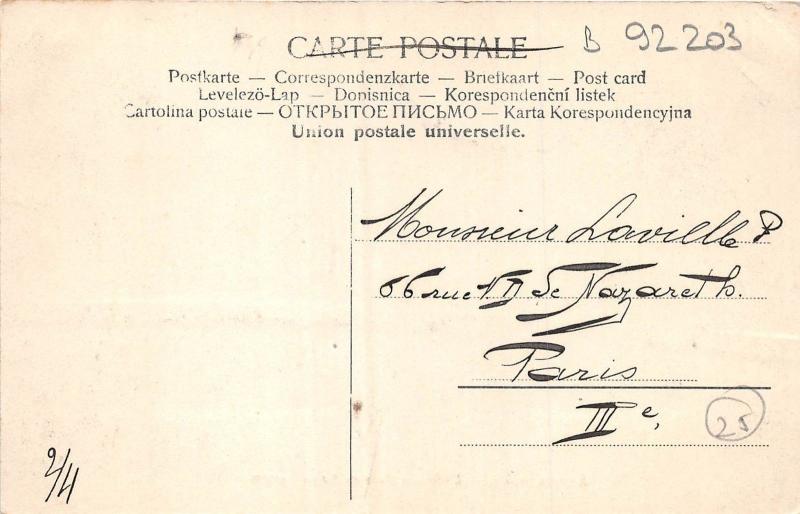 CARTE POSTALE
B 92203
Postkarte — Correspondenzkarte — Briefkaart — Post card
Levelezö-Lap — Dopisnica — Korespondenční listek
Cartolina postale — ОТКРЫТОЕ ПИСЬМО — Karta Korespondencyjna
Union postale universelle.
Monsieur Laville P
66 rue N D de Nazareth.
Paris
IIIe,
25
2/4